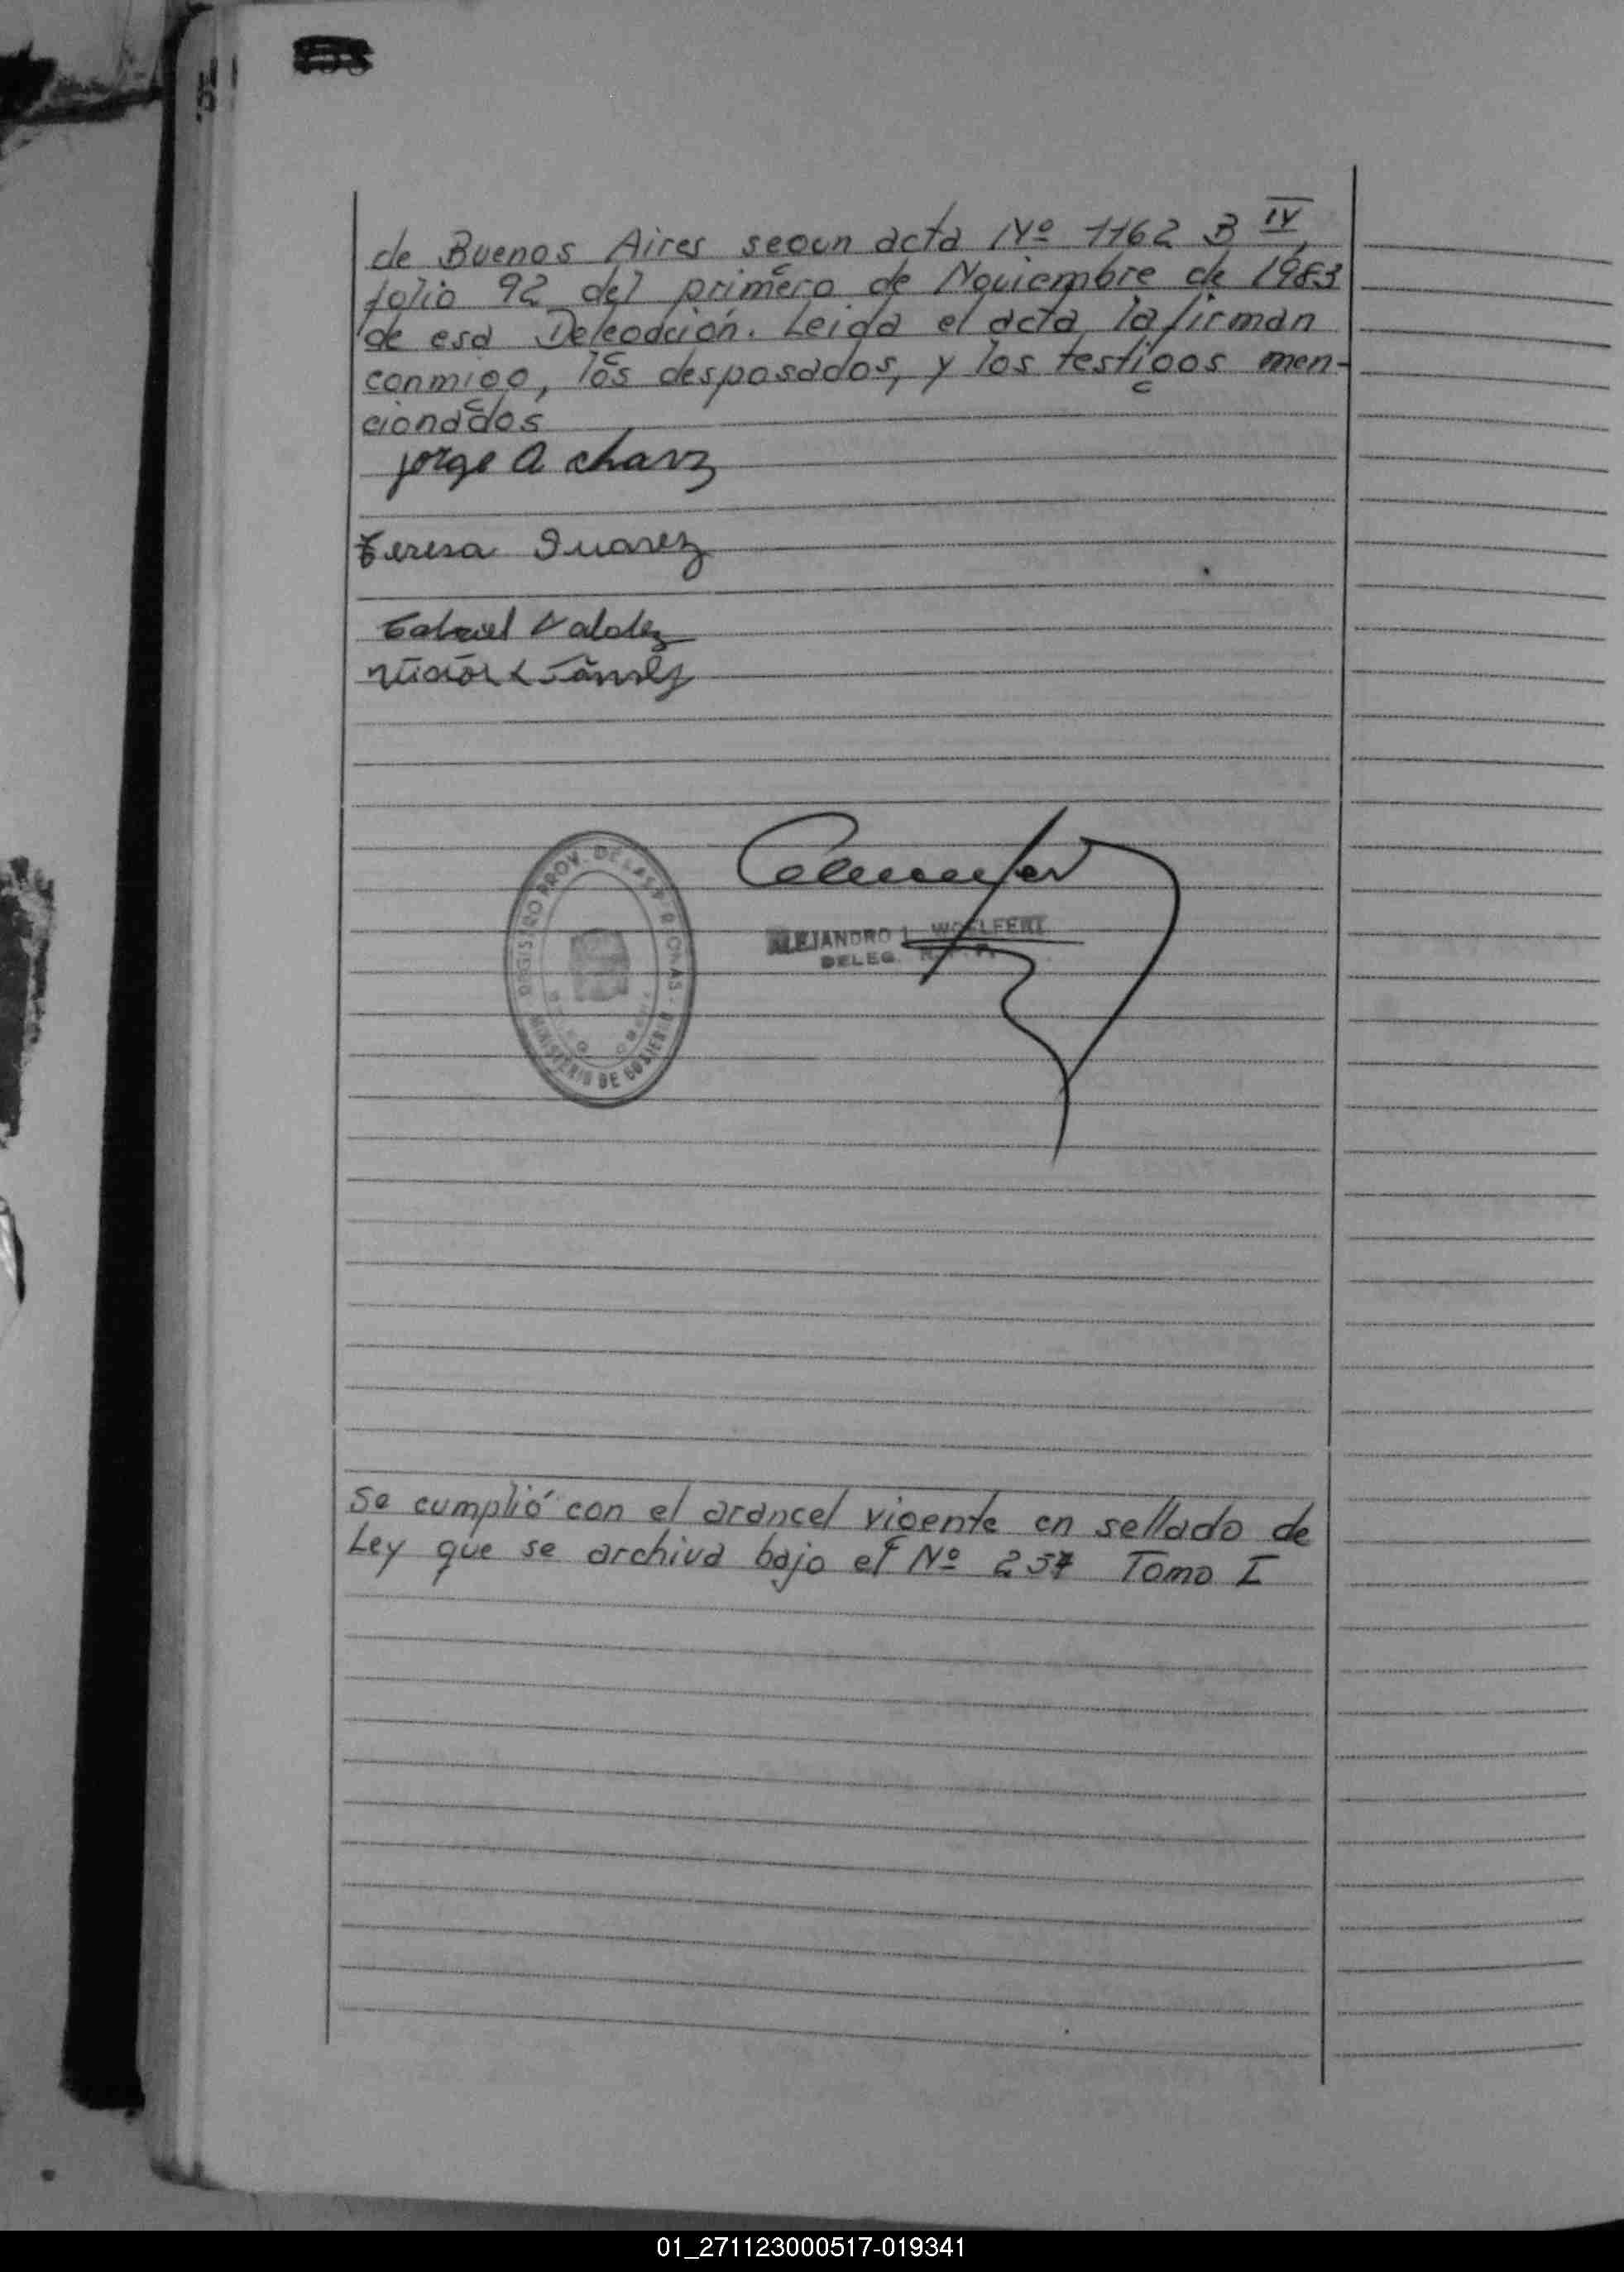 de Buenos Aires segun acta Nº 1162 B IV,
folio 92 del primero de Noviembre de 1983
de esa Delegación. Leida el acta, la firman
conmigo, los desposados, y los testigos men-
cionados
jorge A chavz
Teresa Suarez
Gabriel Valdez
REGISTRO PROV. DE LAS PERSONAS
MINISTERIO DE GOBIERNO
ALEJANDRO L. WOELFERT
DELEG. R.P.P.
Se cumplió con el arancel vigente en sellado de
Ley que se archiva bajo el Nº 257 Tomo I
01_271123000517-019341